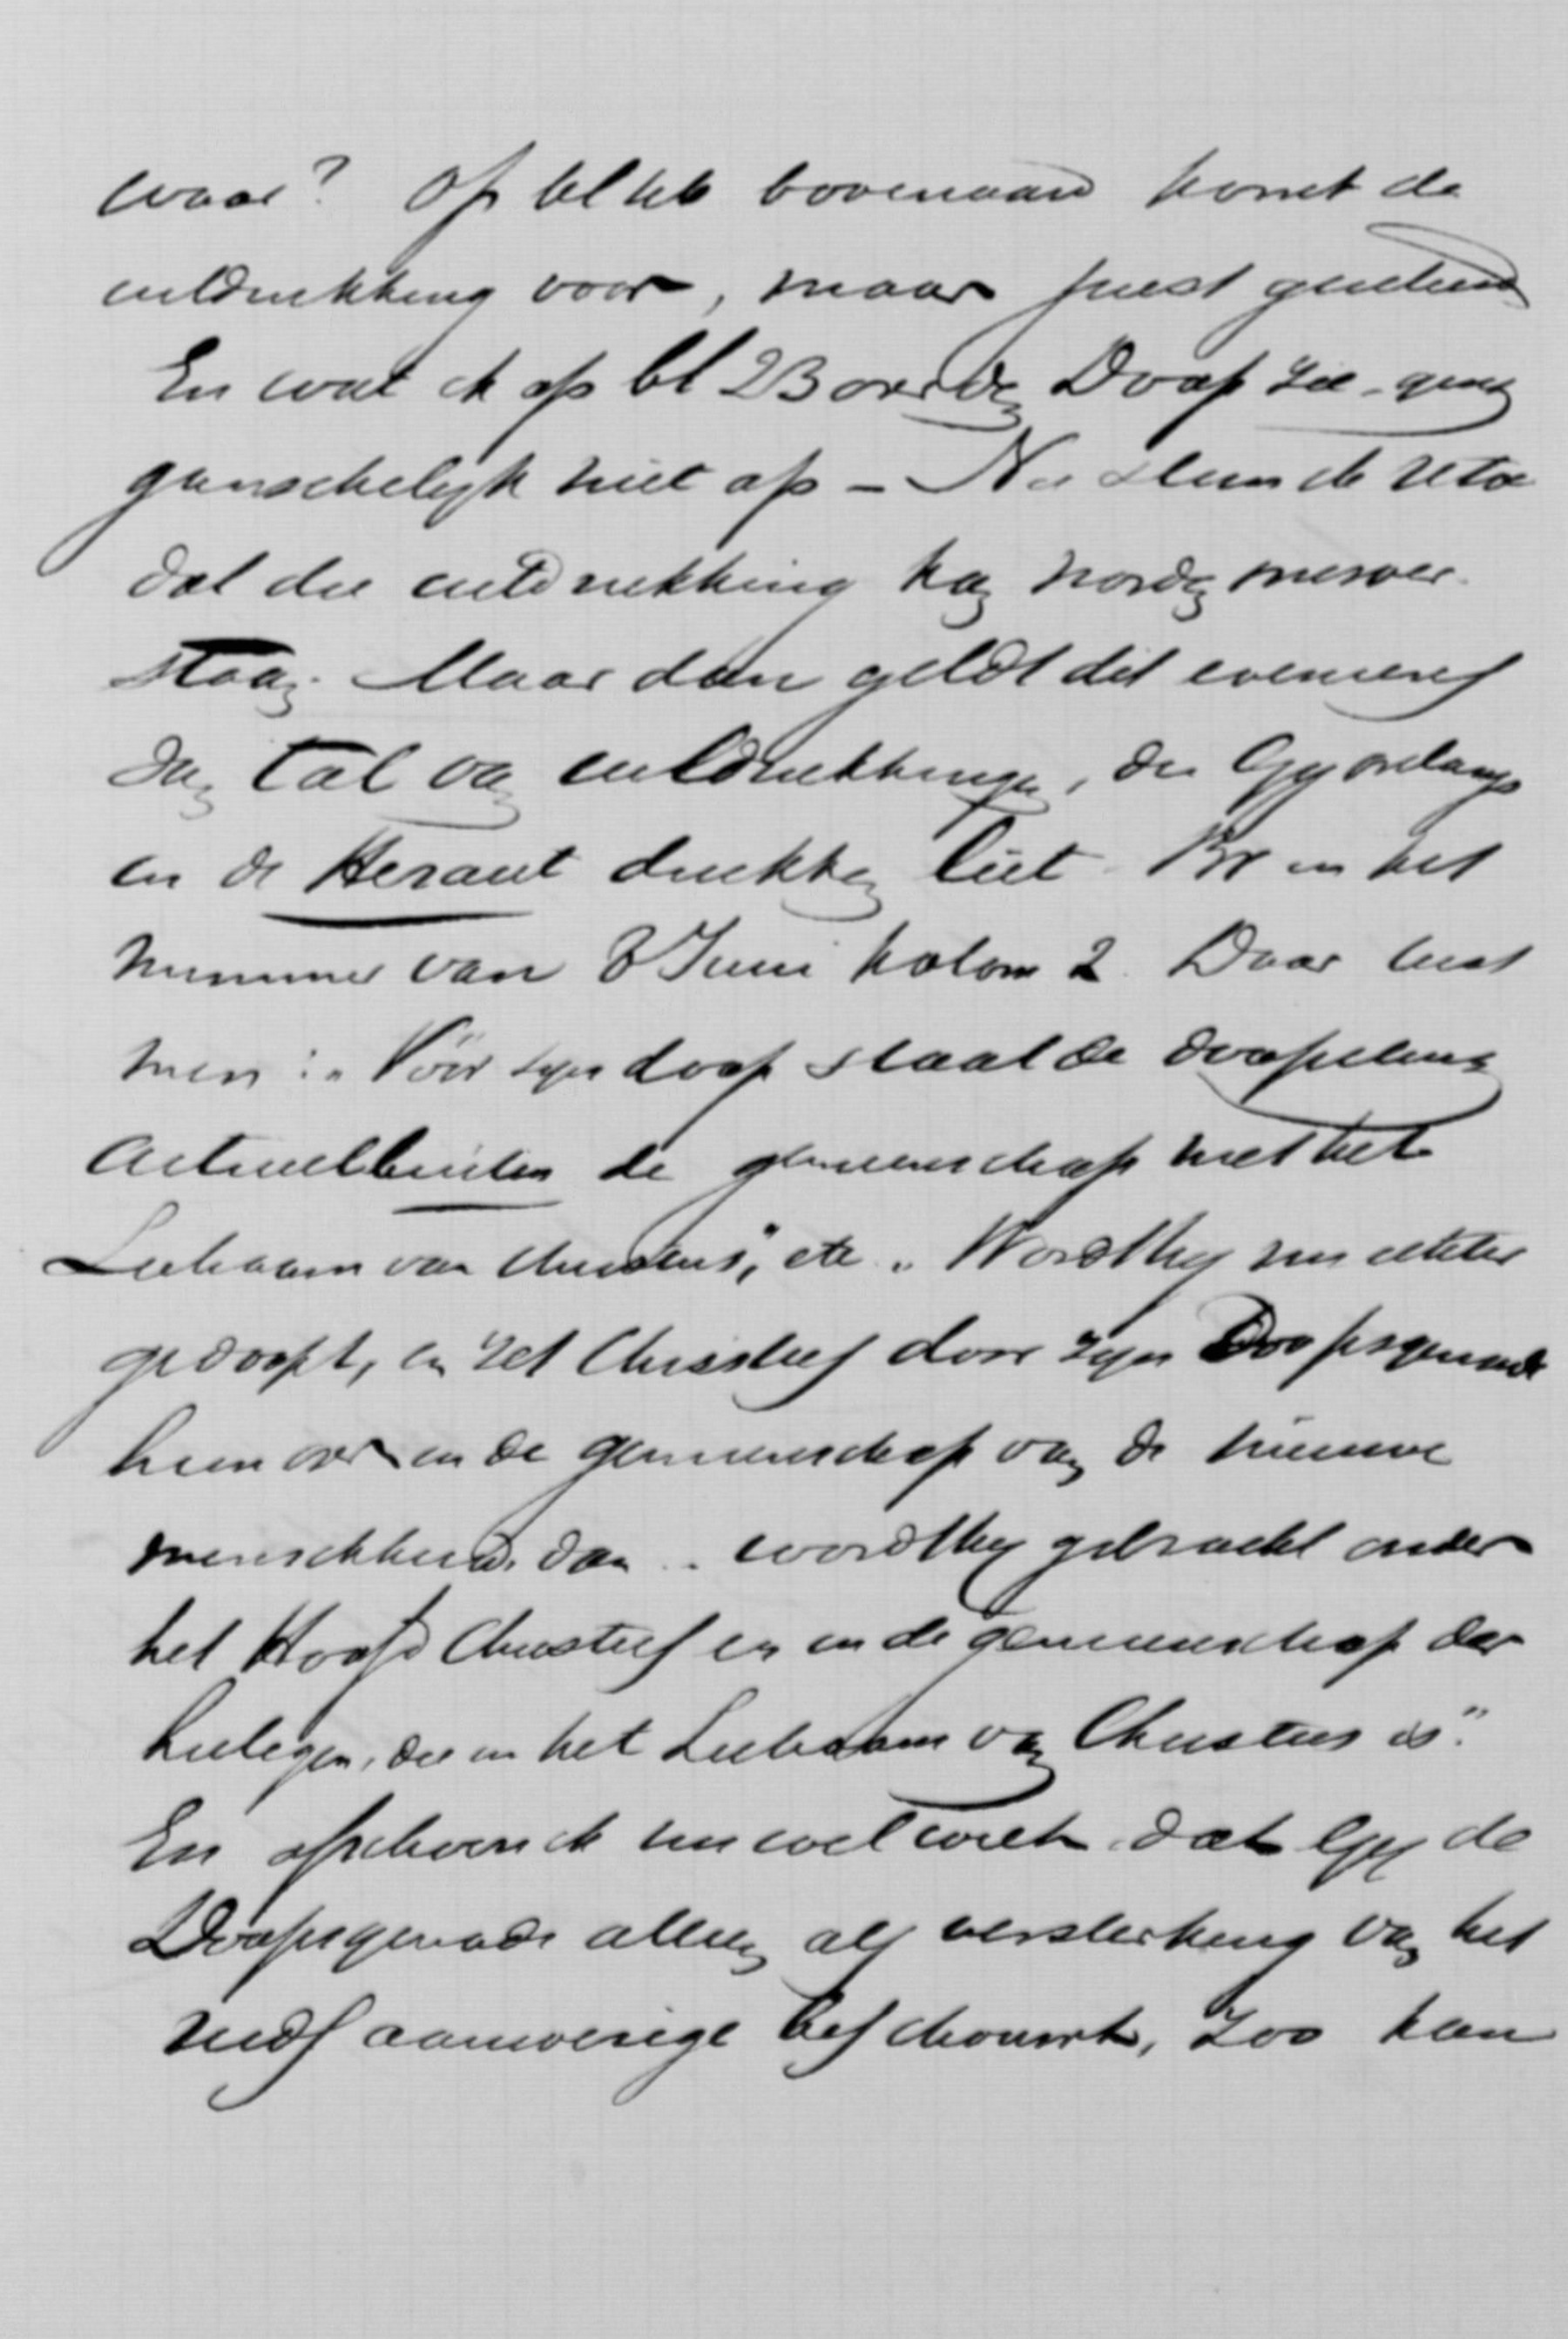 waar? Op bl bovenaan komt de
uitdrukking voor, maar juist
En wat ik op bl 23 over den Doop zei ging
ganschelijk niet op – Nu stem ik U toe
dat die uitdrukking kan worden misver-
staan. Maar dan geldt dit evenzeer
van tal van uitdrukkingen, die Gij onlangs
in de Heraut drukken liet. Bv in het
nummer van 8 Juni kolom 2. Daar leest
men: „Vóór zijn doop staat de doopeling
actueel buiten de gemeenschap met het
Lichaam van Christus," etc. „Wordt hij nu echter
gedoopt, en zet Christus door zijn Doopsgenade
hem over in de gemeenschap van de nieuwe
menschheid, dan .. wordt hij gebracht onder
het Hoofd Christus en in de gemeenschap der
heiligen, die in het Lichaam van Christus is".
En ofschoon ik nu wel weet dat Gij de
Doopsgenade alleen als versterking van het
reeds aanwezige beschouwt, zoo kan